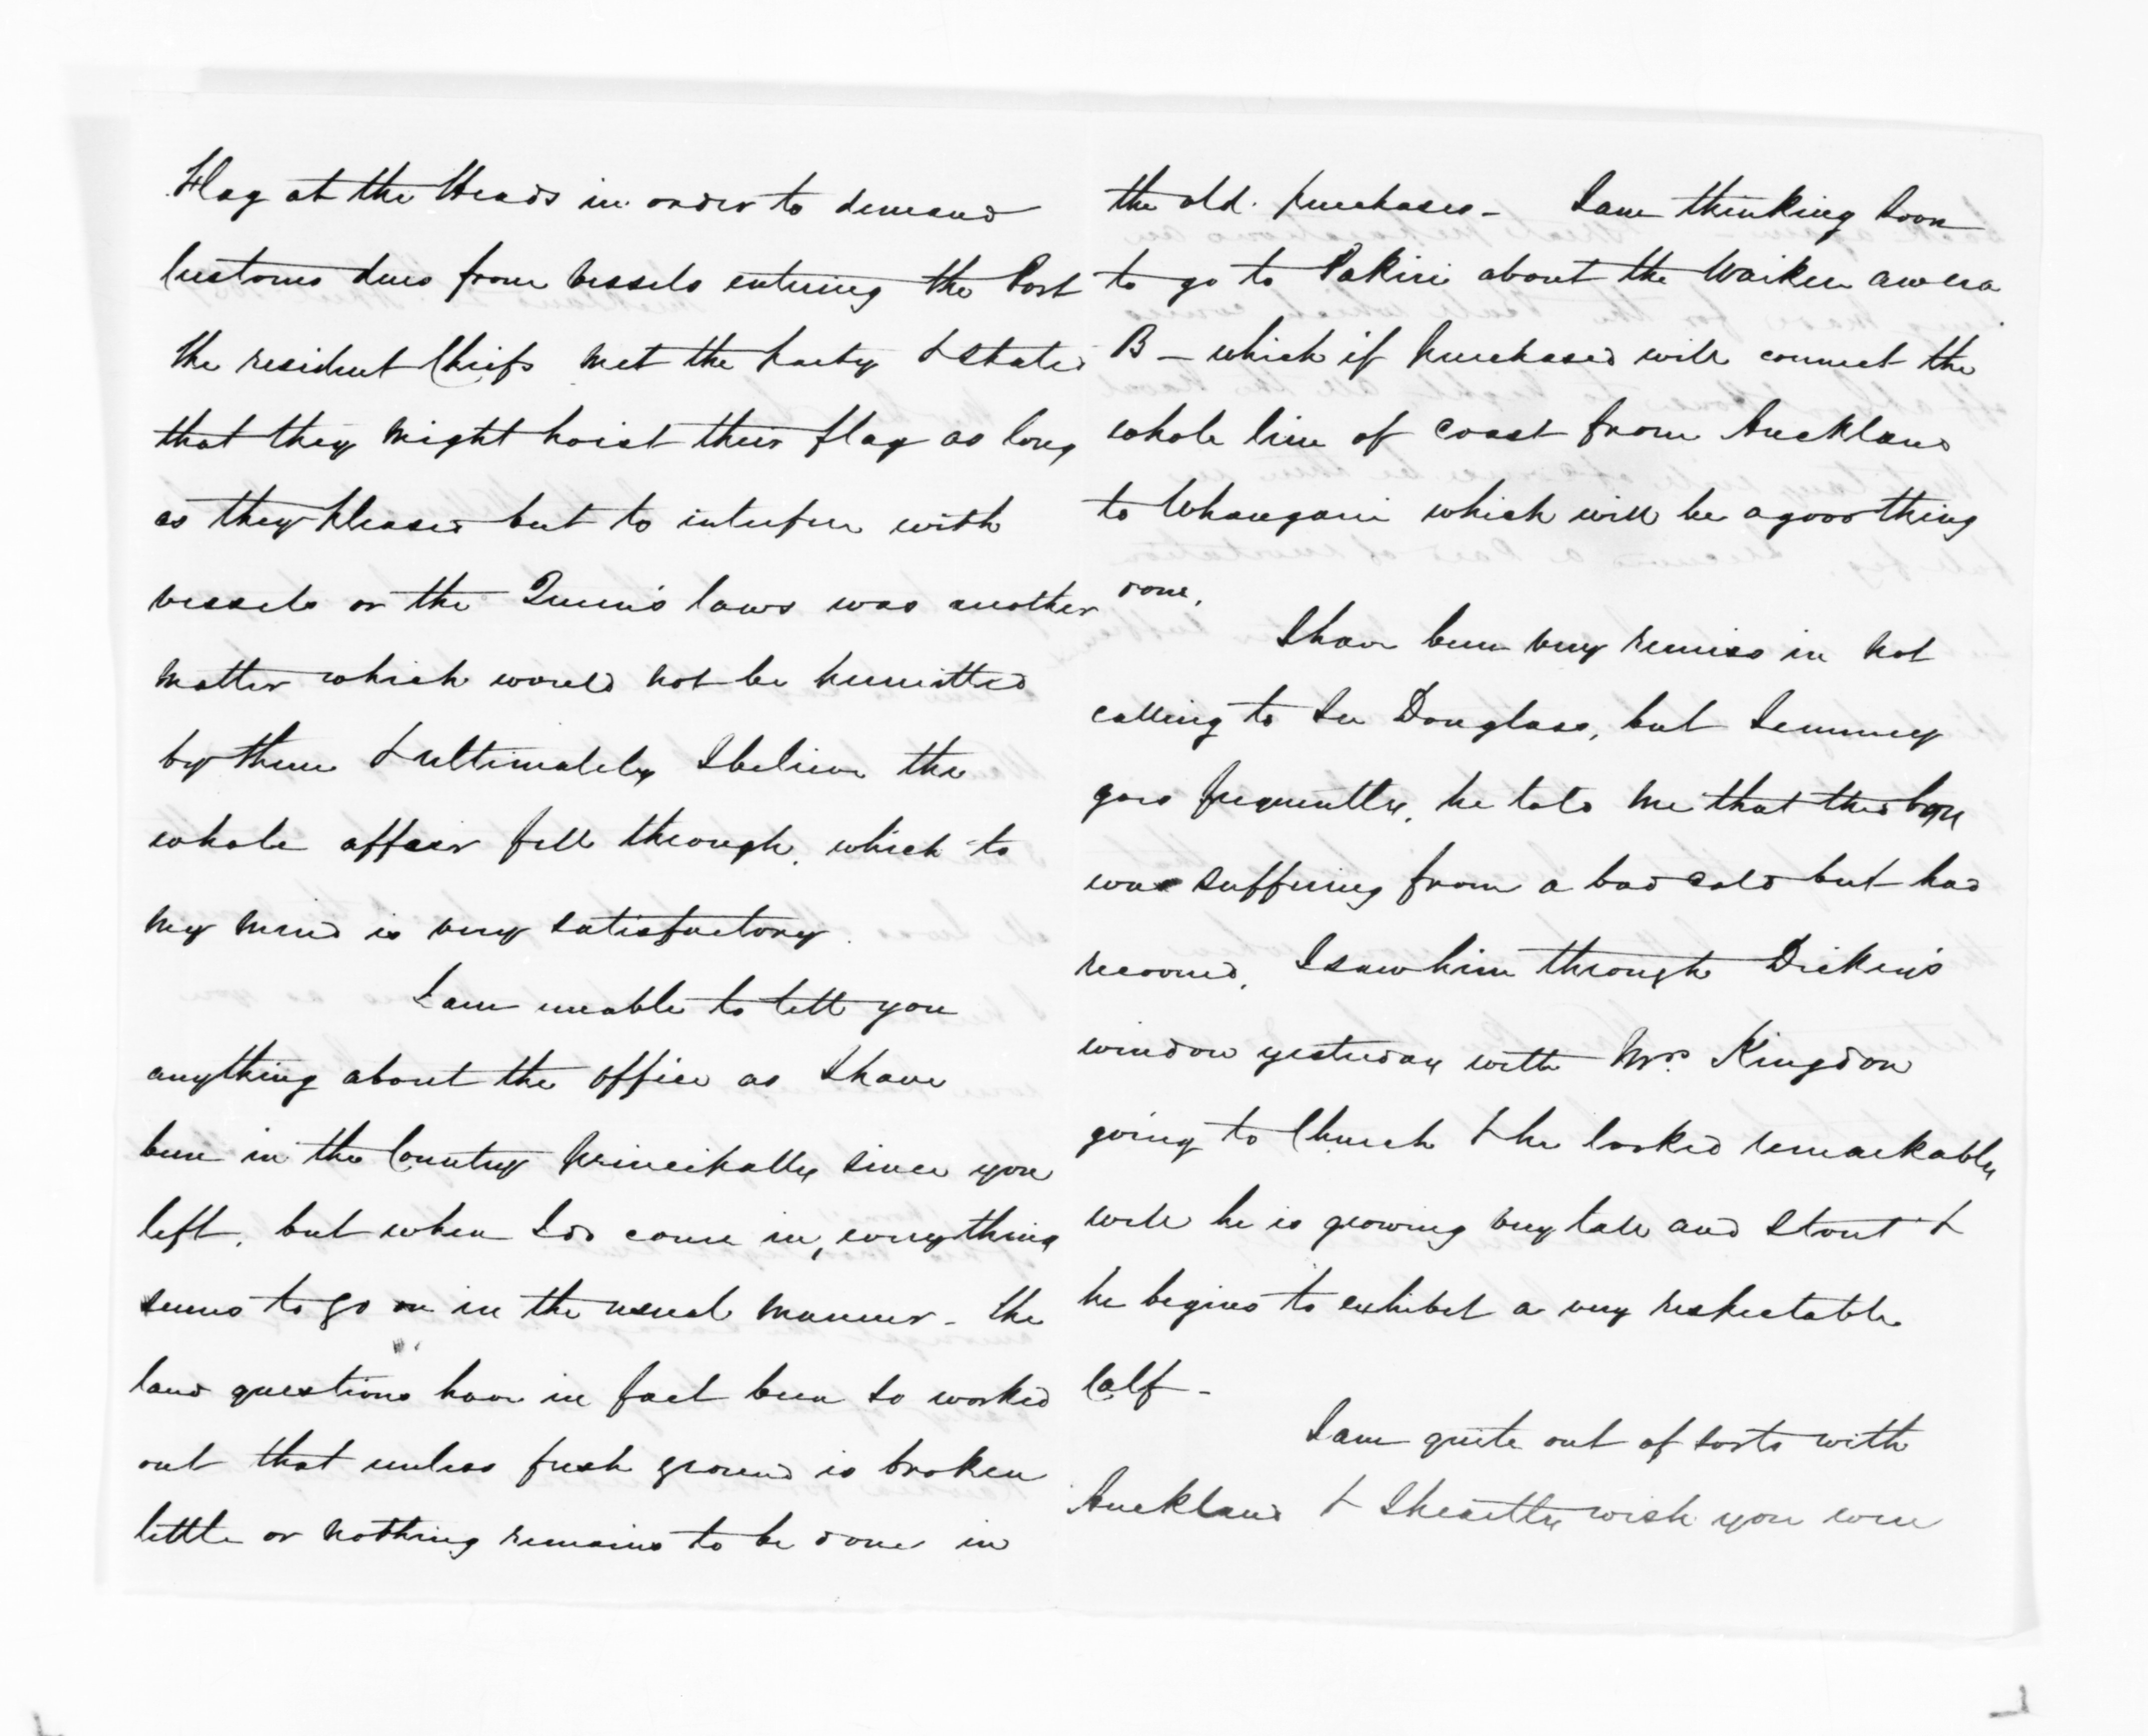 Flag at the Heads in order to demand
Customs dues from vessels entering the Port
the resident Chiefs met the party & stated
that they might hoist their flag as long
as they pleased but to interfere with
vessels or the Queen's laws was another
matter which would not be permitted
by them & ultimately I believe the
whole affair fell through, which to
my mind is very satisfactory.
I am unable to tell you
anything about the office as I have
been in the Country principally since you
left, but when I do come in, everything
seems to go on in the usual manner - the
land questions have in fact been so worked
out that unless fresh ground is broken
little or nothing remains to be done in
the old purchases - I am thinking soon
to go to Pakiri about the
B - which if purchased will connect the
whole line of coast from Auckland
to Whangarei which will be a good thing
done.
I have been very remiss in not
calling to see Douglass, but
goes frequently, he told me that the boy
was suffering from a bad cold but had
recovered. I saw him through Dickey's
window yesterday with Mrs. Kingdon
going to Church & he looked remarkably
well he is growing very tall and stout &
he begins to exhibit a very respectable
Calf -
I am quite out of sorts with
Auckland & I heartily wish you were